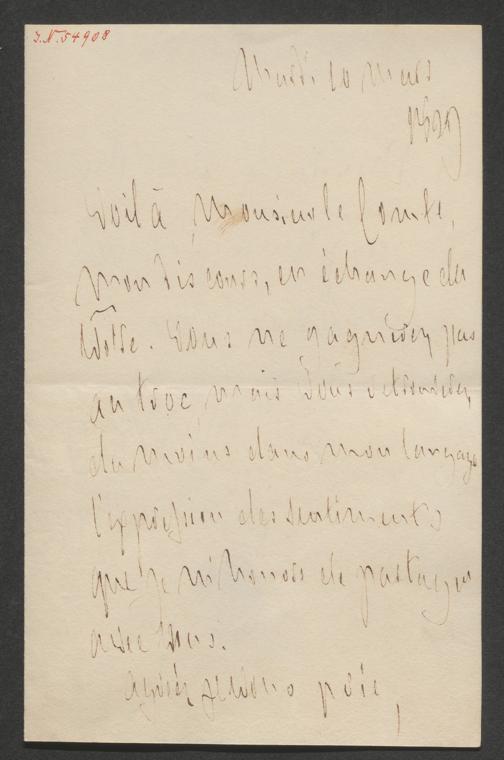 J.N. 54908
Mardi 10 Mars
Voilà, Monsieur le Comte,
mon discours, en échange du
Vôtre. Vous ne gagnerez pas
au troc, mais Vous retrouverez
du moins dans mon langage
l'expression des sentiments
que je m'honore de partager
avec Vous.
Agréez, je Vous prie,